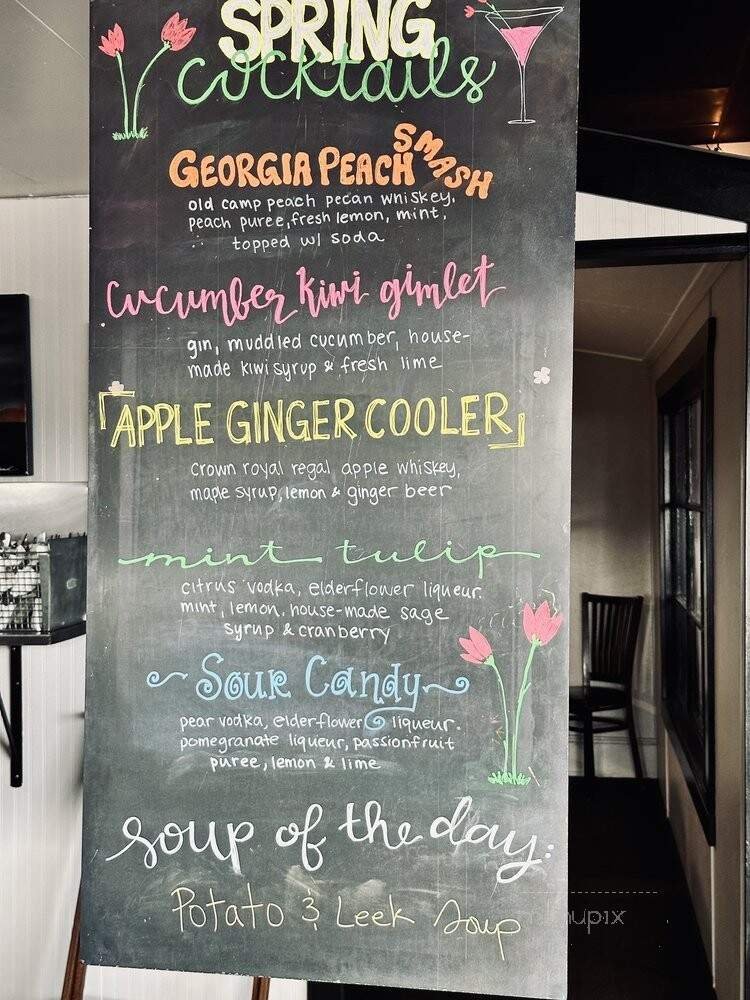 SPRING
cocktails
GEORGIA PEACH SMASH
old camp peach pecan whiskey,
peach puree, fresh lemon, mint,
topped w/ soda
cucumber kiwi gimlet
gin, muddled cucumber, house-
made kiwi syrup & fresh lime
APPLE GINGER COOLER
crown royal regal apple whiskey,
maple syrup, lemon & ginger beer
mint tulip
citrus vodka, elderflower liqueur.
mint, lemon, house-made sage
syrup & cranberry
Sour Candy
pear vodka, elderflower liqueur.
pomegranate liqueur, passionfruit
puree, lemon & lime
soup of the day:
Potato & Leek Soup